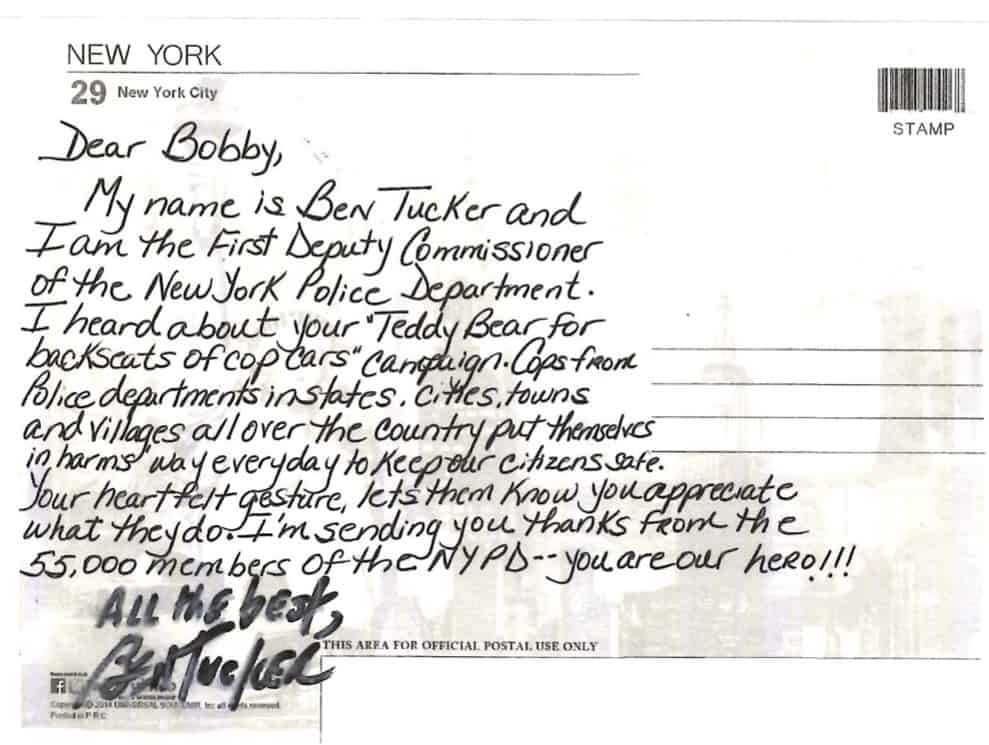 NEW YORK
29 New York City
STAMP
Dear Bobby,
My name is Ben Tucker and
I am the First Deputy Commissioner
of the New York Police Department.
I heard about your "Teddy Bear for
backseats of cop cars" campaign. Cops from
Police departments in states, cities, towns
and villages all over the country put themselves
in harms' way everyday to keep our citizens safe.
Your heartfelt gesture, lets them know you appreciate
what they do. I'm sending you thanks from the
55,000 members of the NYPD -- you are our hero!!!
All the best,
Ben Tucker
THIS AREA FOR OFFICIAL POSTAL USE ONLY
2014 UNIVERSAL Inc all rights reserved.
Printed in P.R.C